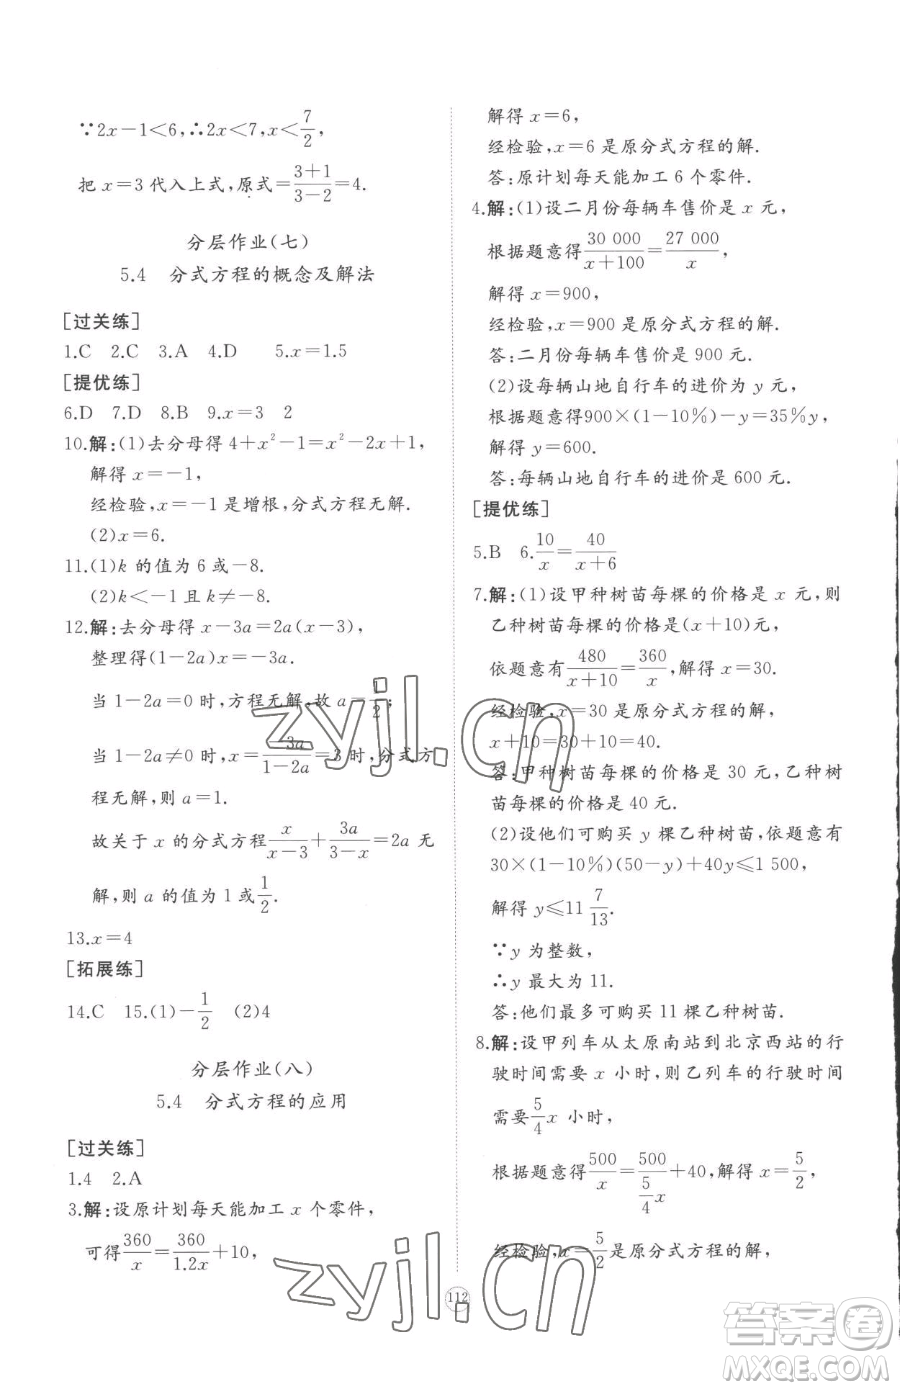 ∵2x−1<6,∴2x<7,x<7/2,
把 x=3 代入上式,原式=(3+1)/(3−2)=4.
分层作业(七)
5.4 分式方程的概念及解法
[过关练]
1.C 2.C 3.A 4.D 5.x=1.5
[提优练]
6.D 7.D 8.B 9.x=3 2
10.解:(1)去分母得 4+x²−1=x²−2x+1,
解得 x=−1,
经检验,x=−1 是增根,分式方程无解.
(2)x=6.
11.(1)k 的值为 6 或−8.
(2)k<−1 且 k≠−8.
12.解:去分母得 x−3a=2a(x−3),
整理得(1−2a)x=−3a.
当 1−2a=0 时,方程无解,故 a=1/2;
当 1−2a≠0 时,x=−3a/(1−2a)=3 时,分式方
程无解,则 a=1.
故关于 x 的分式方程 x/(x−3)+3a/(3−x)=2a 无
解,则 a 的值为 1 或 1/2.
13.x=4
[拓展练]
14.C 15.(1)−1/2 (2)4
分层作业(八)
5.4 分式方程的应用
[过关练]
1.4 2.A
3.解:设原计划每天能加工 x 个零件,
可得 360/x=360/1.2x+10,
解得 x=6,
经检验,x=6 是原分式方程的解.
答:原计划每天能加工 6 个零件.
4.解:(1)设二月份每辆车售价是 x 元,
根据题意得 30 000/(x+100)=27 000/x,
解得 x=900,
经检验,x=900 是原分式方程的解.
答:二月份每辆车售价是 900 元.
(2)设每辆山地自行车的进价为 y 元,
根据题意得900×(1−10%)−y=35%y,
解得 y=600.
答:每辆山地自行车的进价是 600 元.
[提优练]
5.B 6.10/x=40/(x+6)
7.解:(1)设甲种树苗每棵的价格是 x 元,则
乙种树苗每棵的价格是(x+10)元,
依题意有 480/(x+10)=360/x,解得 x=30.
经检验,x=30 是原分式方程的解,
x+10=30+10=40.
答:甲种树苗每棵的价格是 30 元,乙种树
苗每棵的价格是 40 元.
(2)设他们可购买 y 棵乙种树苗,依题意有
30×(1−10%)(50−y)+40y≤1 500,
解得 y≤11 7/13.
∵y 为整数,
∴y 最大为 11.
答:他们最多可购买 11 棵乙种树苗.
8.解:设甲列车从太原南站到北京西站的行
驶时间需要 x 小时,则乙列车的行驶时间
需要 5/4 x 小时,
根据题意得 500/x=500/(5/4 x)+40,解得 x=5/2,
经检验,x=5/2 是原分式方程的解,
112
zyjl.cn
zyjl.cn
答案圈
MXQE.COM